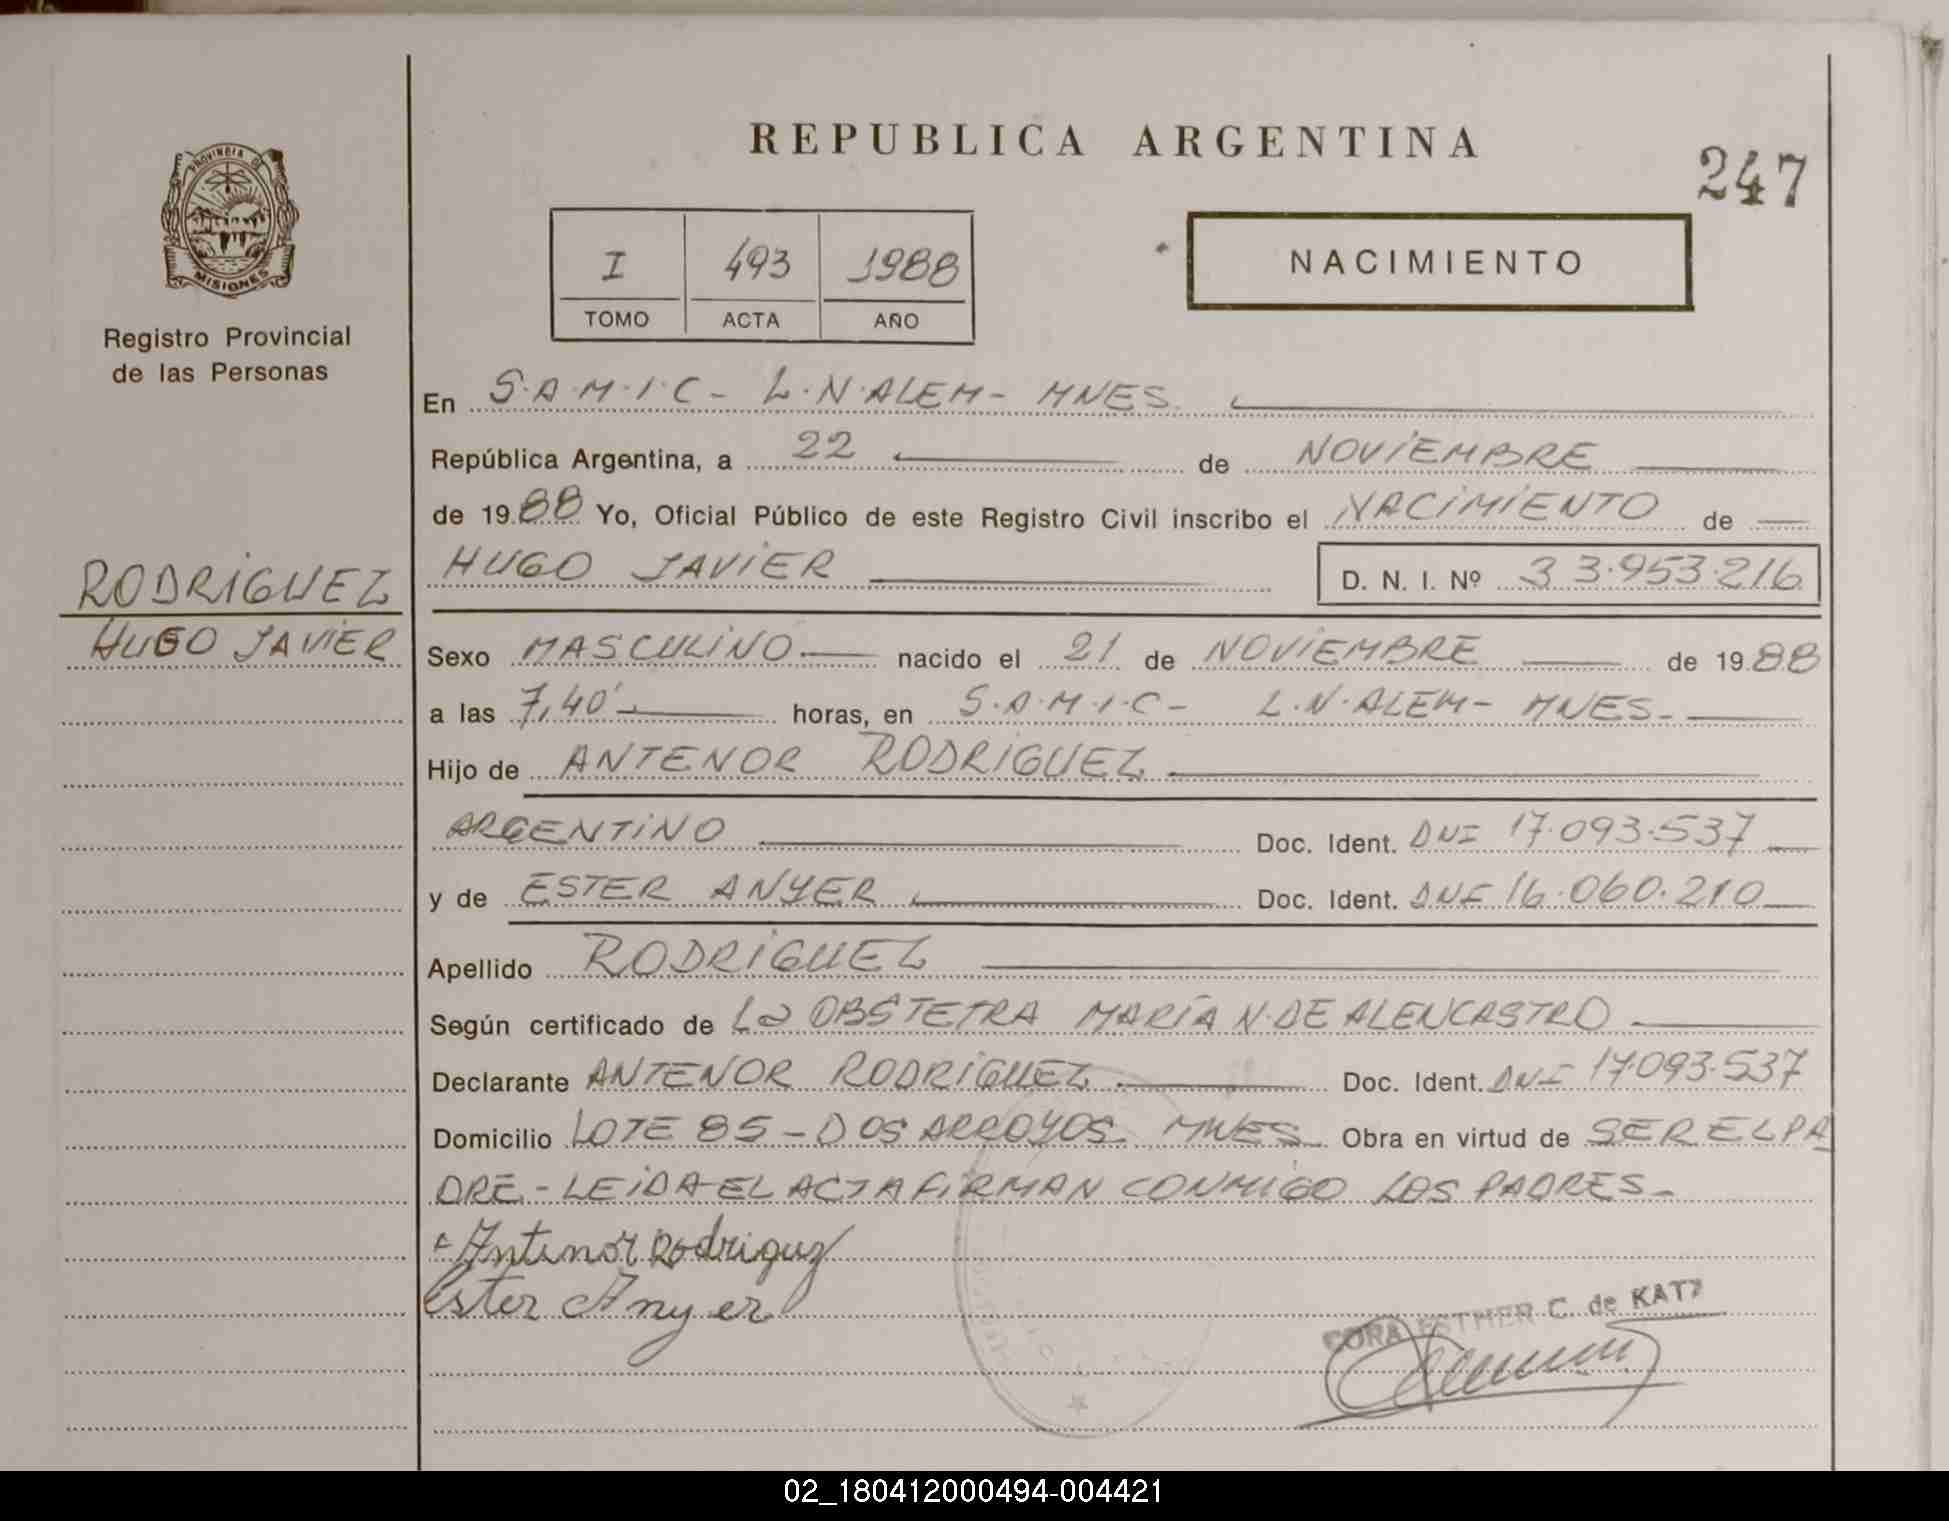 REPUBLICA ARGENTINA
247
PROVINCIA DE
MISIONES
Registro Provincial
de las Personas
I 493 1988
TOMO ACTA AÑO
NACIMIENTO
En S.A.M.I.C- L.N.ALEM- MNES.
República Argentina, a 22 de NOVIEMBRE
de 1988 Yo, Oficial Público de este Registro Civil inscribo el NACIMIENTO de
HUGO JAVIER D. N. I. Nº 33.953.216
RODRIGUEZ
HUGO JAVIER
Sexo MASCULINO nacido el 21 de NOVIEMBRE de 1988
a las 7,40' horas, en S.A.M.I.C- L.N.ALEM- MNES-
Hijo de ANTENOR RODRIGUEZ
ARGENTINO Doc. Ident. DNI 17.093.537
y de ESTER ANYER Doc. Ident. DNI 16.060.210
Apellido RODRIGUEZ
Según certificado de La OBSTETRA MARÍA N. DE ALENCASTRO
Declarante ANTENOR RODRIGUEZ Doc. Ident. DNI 17.093.537
Domicilio LOTE 85 - DOS ARROYOS. MNES. Obra en virtud de SER EL PA
DRE - LEIDA EL ACTA FIRMAN CONMIGO LOS PADRES-
Antenor Rodriguez
Ester Anyer
CORA ESTHER C. de KATZ
02_180412000494-004421